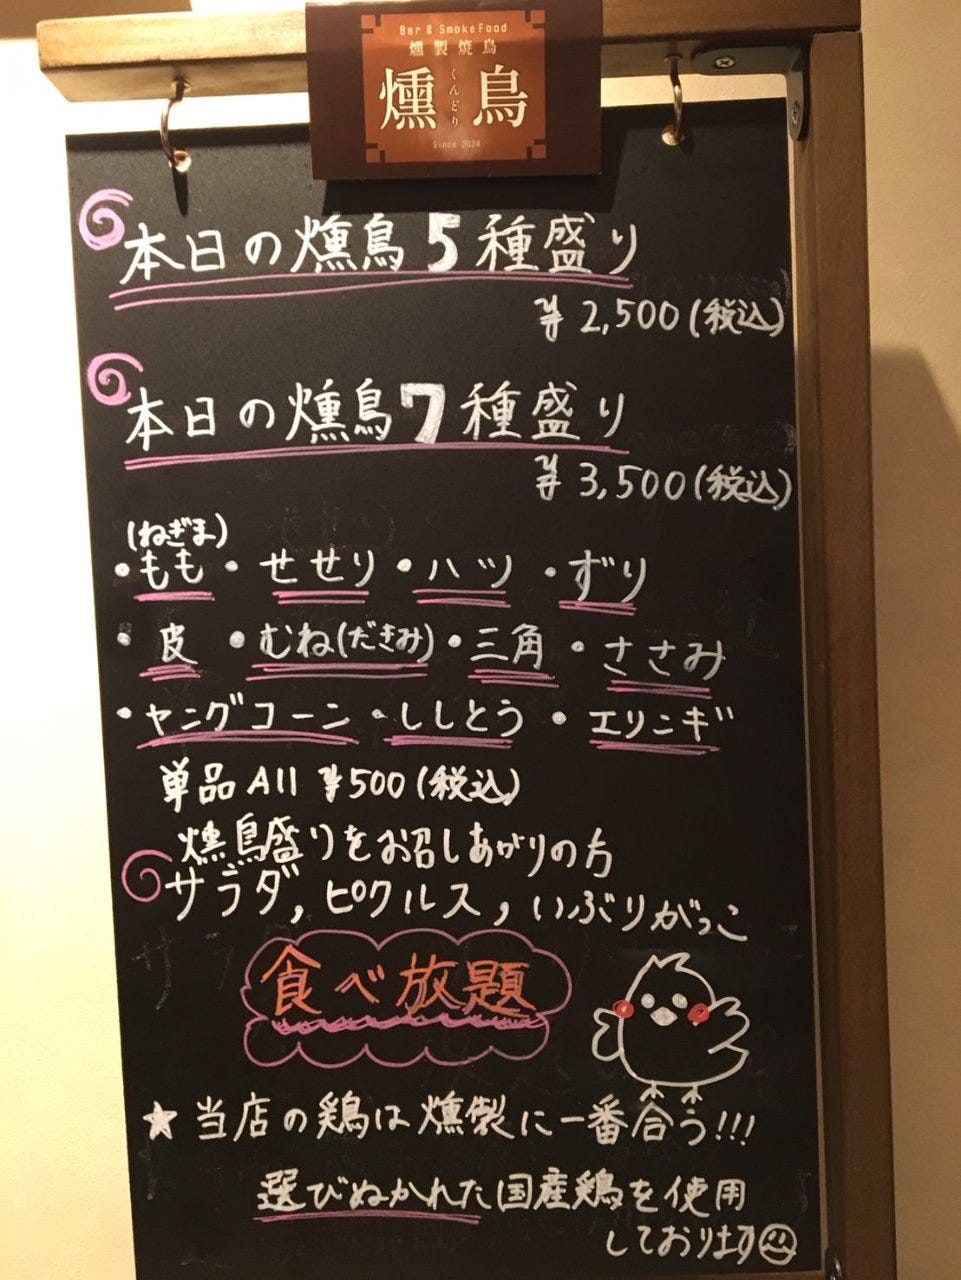 Bar & SmokeFood
燻製焼鳥
燻鳥
くんどり
Since 2024
本日の燻鳥5種盛り
¥2,500(税込)
本日の燻鳥7種盛り
¥3,500(税込)
(ねぎま)
・もも・せせり・ハツ・ずり
・皮・むね(だきみ)・三角・ささみ
・ヤングコーン・ししとう・エリンギ
単品All ¥500(税込)
燻鳥盛りをお召しあがりの方
サラダ,ピクルス,いぶりがっこ
食べ放題
★当店の鶏は燻製に一番合う!!!
選びぬかれた国産鶏を使用
しております